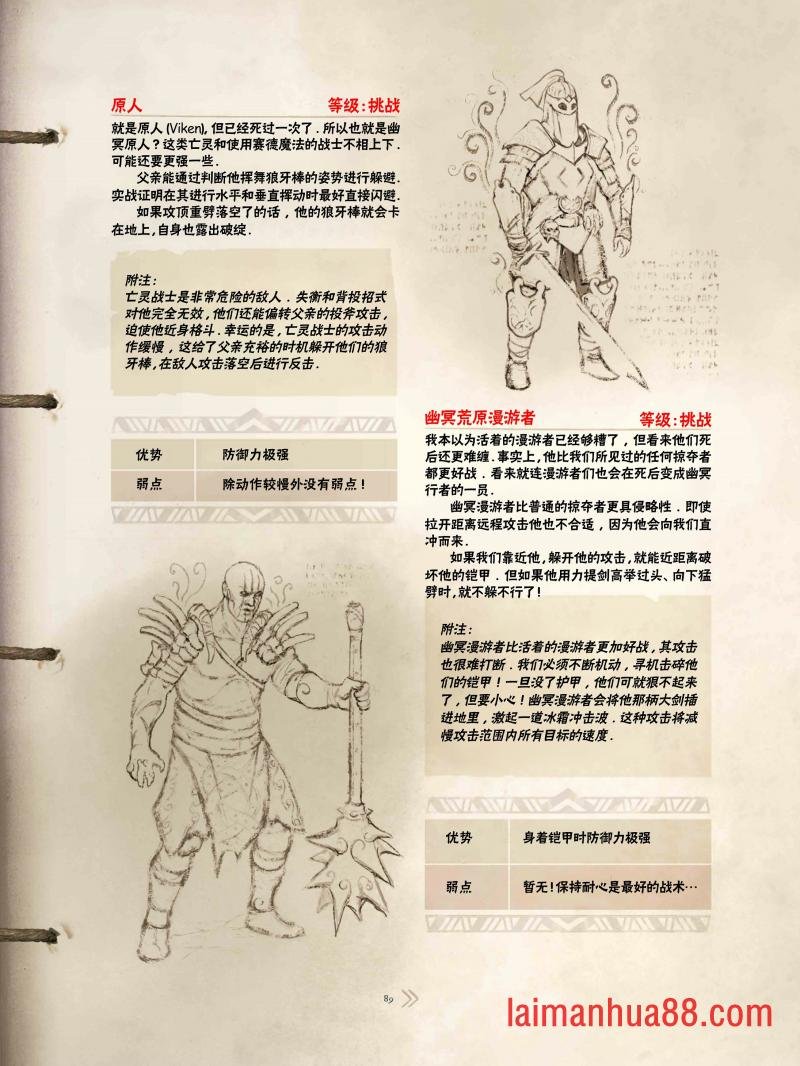 原人 等级：挑战
就是原人 (Viken), 但已经死过一次了．所以也就是幽
冥原人？这类亡灵和使用赛德魔法的战士不相上下．
可能还要更强一些．
父亲能通过判断他挥舞狼牙棒的姿势进行躲避．
实战证明在其进行水平和垂直挥动时最好直接闪避．
如果攻顶重劈落空了的话，他的狼牙棒就会卡
在地上，自身也露出破绽．
附注：
亡灵战士是非常危险的敌人．失衡和背投招式
对他完全无效，他们还能偏转父亲的投斧攻击，
迫使他近身格斗．幸运的是，亡灵战士的攻击动
作缓慢，这给了父亲充裕的时机躲开他们的狼
牙棒，在敌人攻击落空后进行反击．
优势 防御力极强
弱点 除动作较慢外没有弱点！
幽冥荒原漫游者 等级：挑战
我本以为活着的漫游者已经够糟了，但看来他们死
后还更难缠．事实上，他比我们所见过的任何掠夺者
都更好战．看来就连漫游者们也会在死后变成幽冥
行者的一员．
幽冥漫游者比普通的掠夺者更具侵略性．即使
拉开距离远程攻击他也不合适，因为他会向我们直
冲而来．
如果我们靠近他，躲开他的攻击，就能近距离破
坏他的铠甲．但如果他用力提剑高举过头、向下猛
劈时，就不躲不行了！
附注：
幽冥漫游者比活着的漫游者更加好战，其攻击
也很难打断．我们必须不断机动，寻机击碎他
们的铠甲！一旦没了护甲，他们可就狠不起来
了，但要小心！幽冥漫游者会将他那柄大剑插
进地里，激起一道冰霜冲击波．这种攻击将减
慢攻击范围内所有目标的速度．
优势 身着铠甲时防御力极强
弱点 暂无！保持耐心是最好的战术…
89
laimanhua88.com